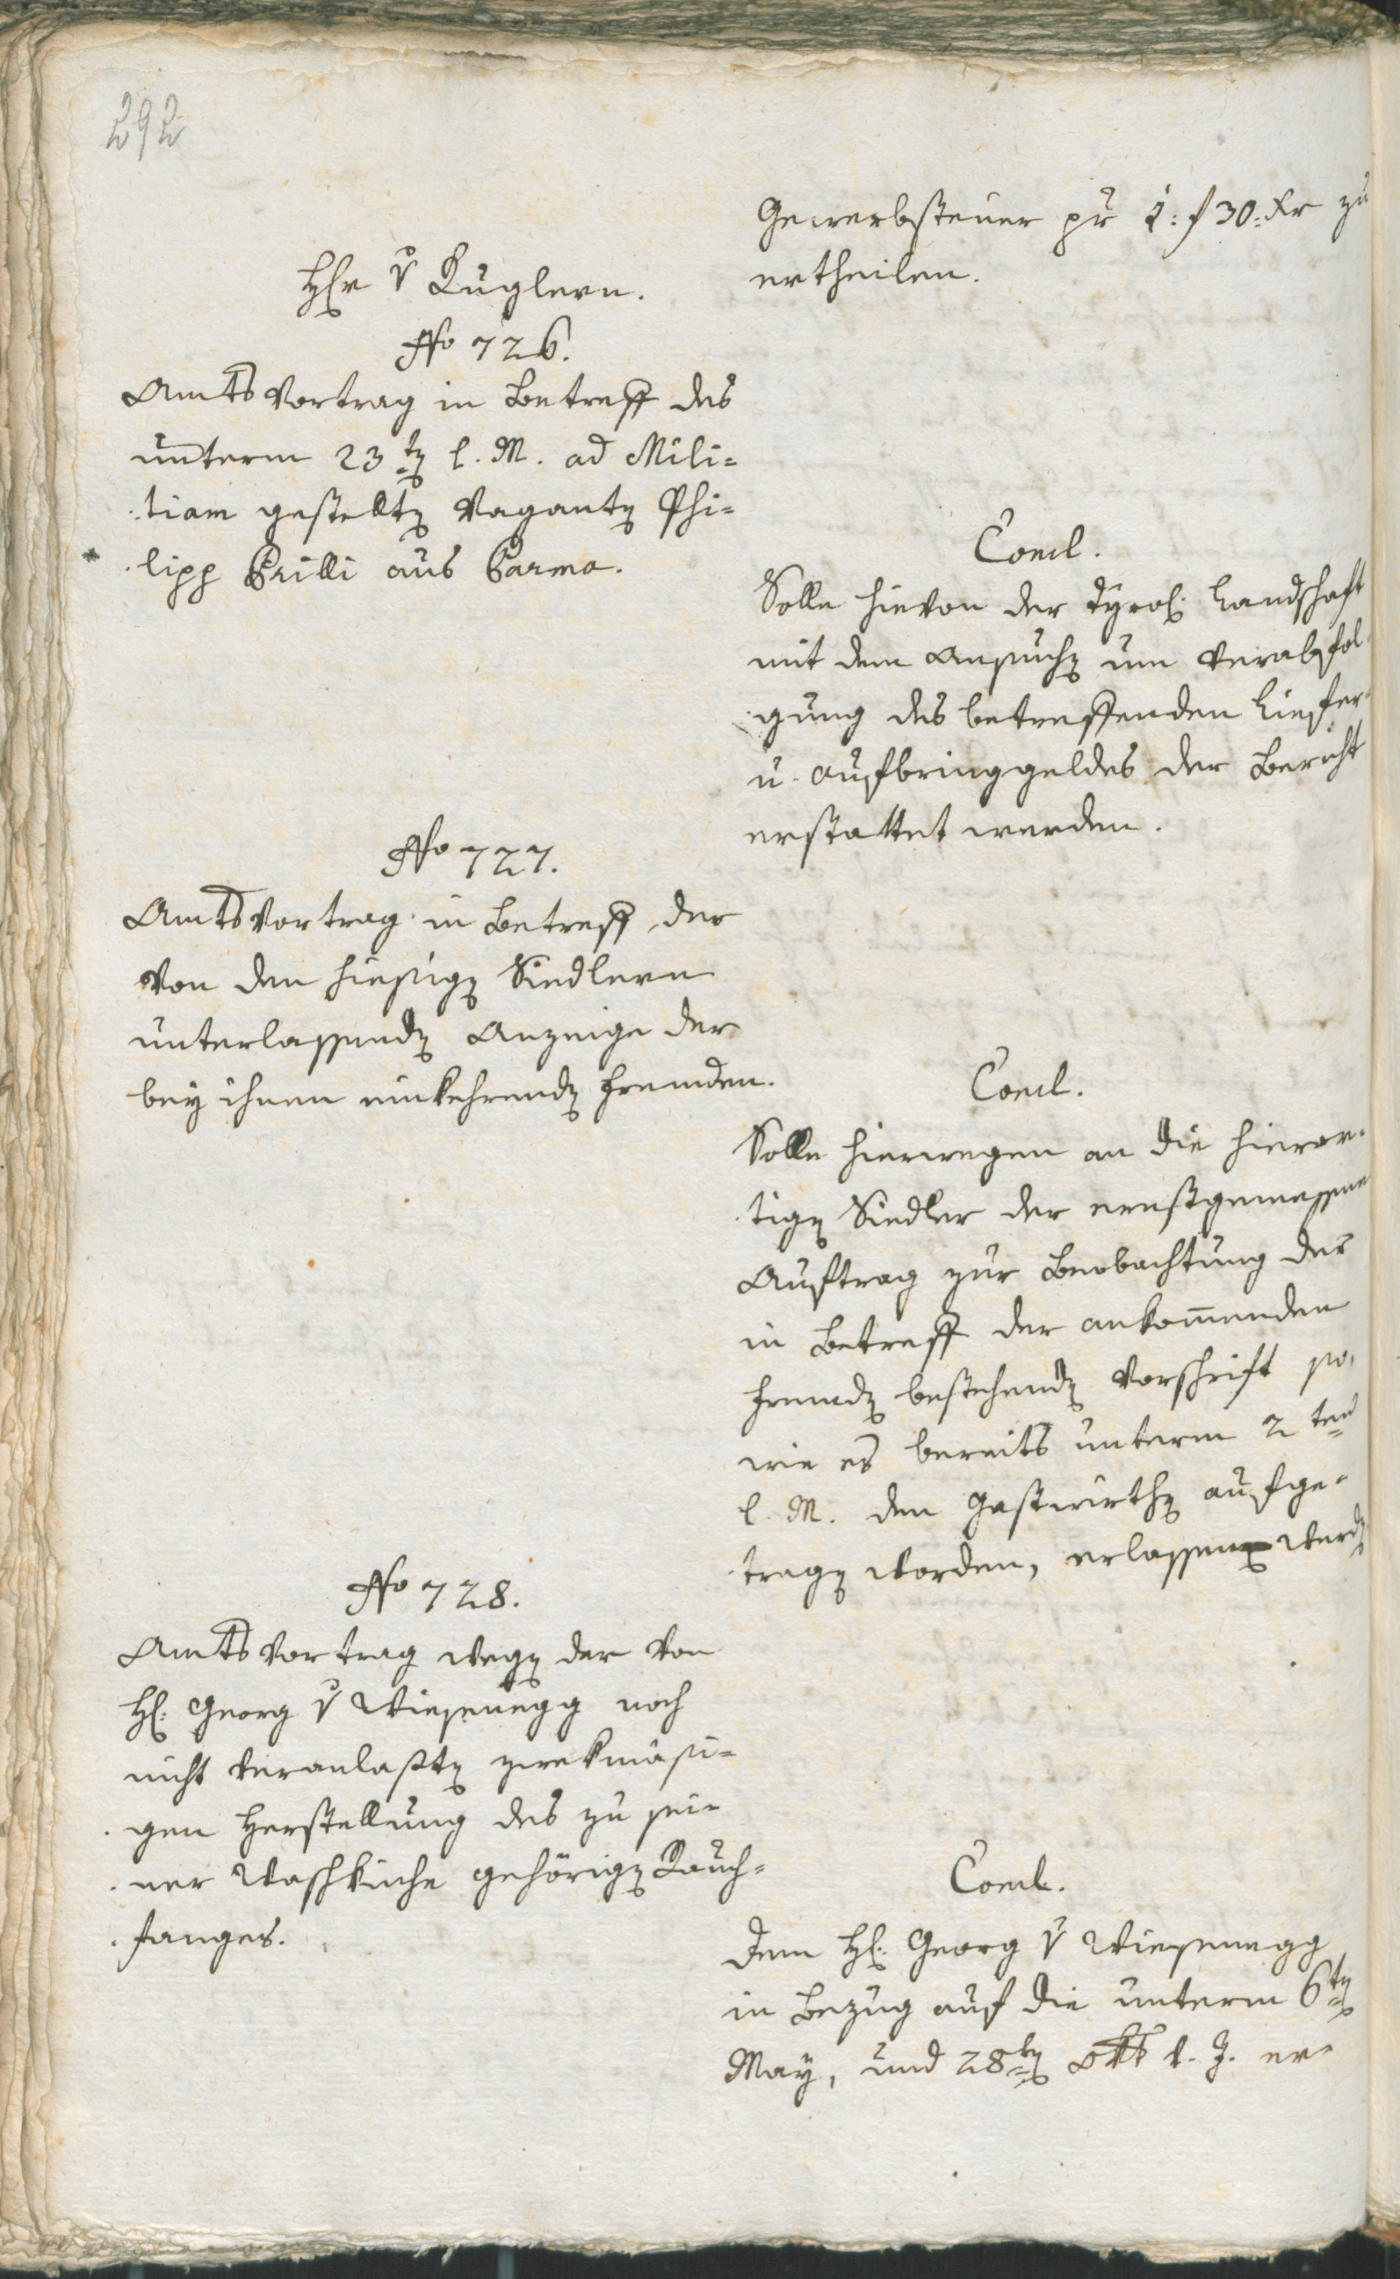 292
Gewerbsteuer pr 1: f 30: kr zu
ertheilen.
Hr v Kuglern.
No 726.
Amts Vortrag in Betreff des
unterm 23ten l. M. ad Mili=
tiam gestellten Vaganten Phi=
lipp Grilli aus Parma.
Concl.
Solle hievon der Tyrol. Landschaft
mit dem Ansuchen um Verabfol
gung des betreffenden Liefer
u. Aufbringgeldes der Bericht
erstattet werden.
No 727.
Amts Vortrag in Betreff der
von den hiesigen Siedlern
unterlassenden Anzeige der
bey ihnen einkehrenden Fremden.
Concl.
Solle hierwegen an die hieror=
tigen Siedler der ernstgemessene
Auftrag zur Beobachtung der
in Betreff der ankommenden
Fremden bestehenden Vorschrift so,
wie es bereits unterm 2ten
l. M. den Gastwirthen aufge=
tragen worden, erlassen werden
No 728.
Amts Vortrag wegen der von
H: Georg v Wiesenegg noch
nicht veranlaßten zwekmäsi=
gen Herstellung des zu sei=
ner Waschküche gehörigen Rauch=
fanges.
Concl.
Dem H: Georg v Wiesenegg
in Bezug auf die unterm 6ten
May, und 28ten Okt l. J. er=